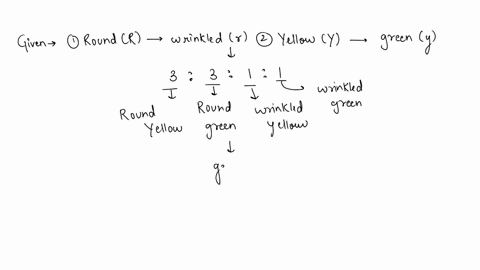 Given → ① Round (R) → wrinkled (r) ② Yellow (Y) → green (y)
↓
3 : 3 : 1 : 1
↓ ↓ ↓ wrinkled green
Round Yellow Round green wrinkled yellow
↓
g